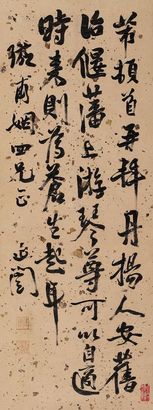 若頓首再拜丹揚人安舊
治偃藩上游琴尊可以自適
時來則為蒼生起耳
瓊甫姻四兄正